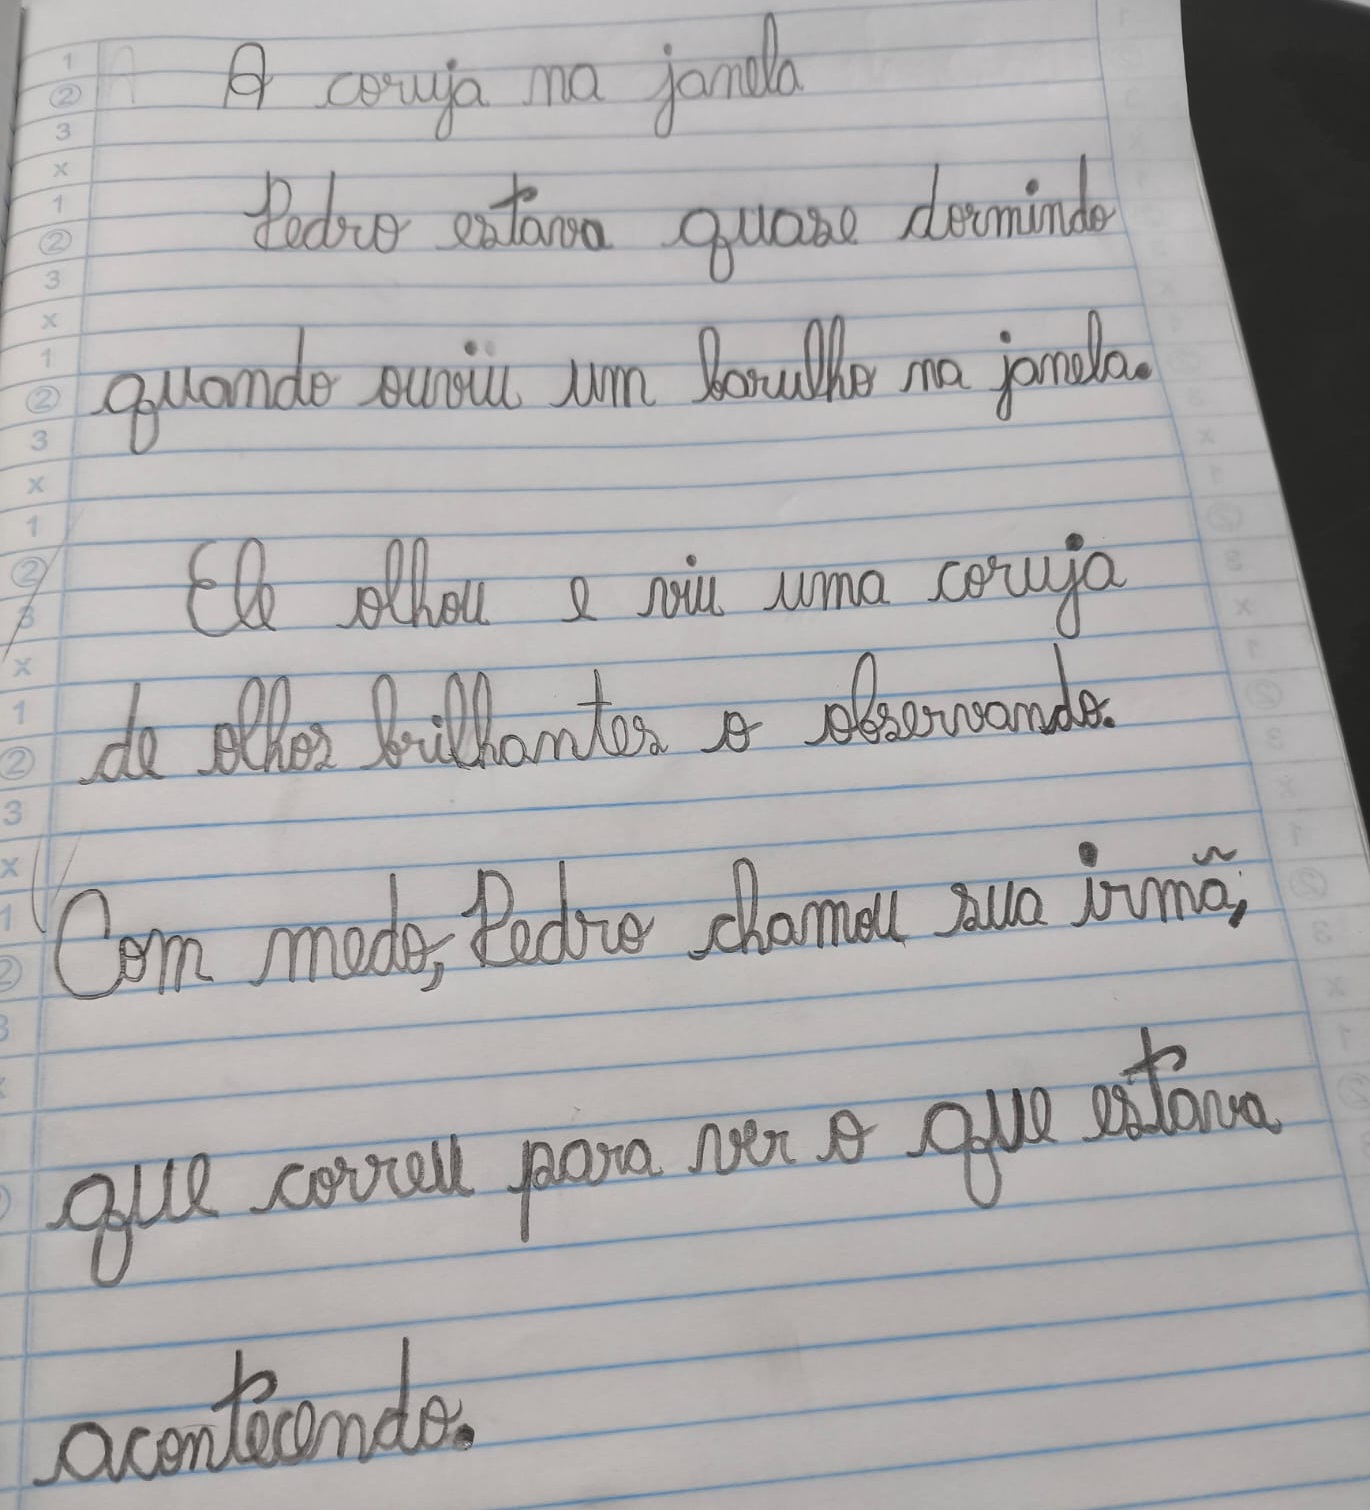 A coruja na janela
Pedro estava quase dormindo
quando ouviu um barulho na janela.
Ele olhou e viu uma coruja
de olhos brilhantes o observando.
Com medo, Pedro chamou sua irmã,
que correu para ver o que estava
acontecendo.